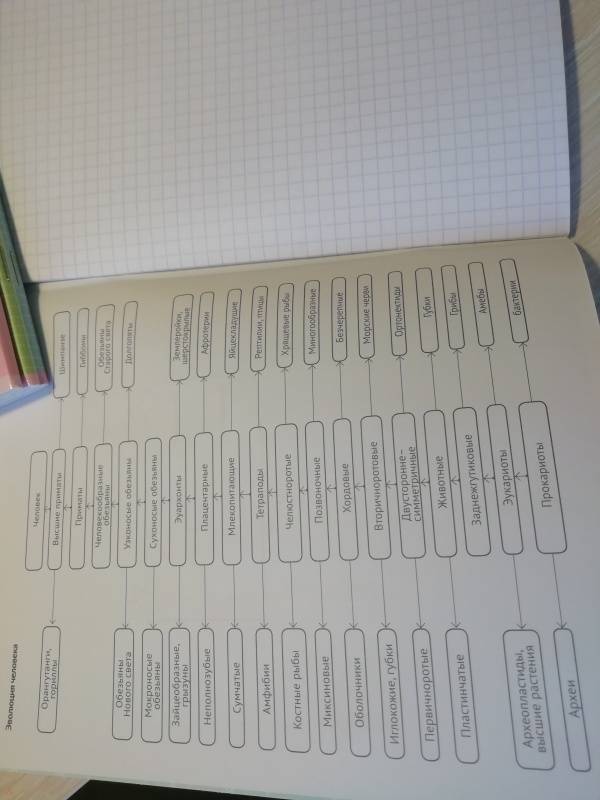 Эволюция человека
Человек
Орангутанги,
гориллы
Высшие приматы
Шимпанзе
Приматы
Гиббоны
Человекообразные
обезьяны
Обезьяны
Старого света
Обезьяны
Нового света
Узконосые обезьяны
Долгопяты
Мокроносые
обезьяны
Сухоносые обезьяны
Зайцеобразные,
грызуны
Эуархонты
Землеройки,
шерстокрылья
Неполнозубые
Плацентарные
Афротерии
Сумчатые
Млекопитающие
Яйцекладущие
Амфибии
Тетраподы
Рептилии, птицы
Костные рыбы
Челюстноротые
Хрящевые рыбы
Миксиновые
Позвоночные
Миногообразные
Оболочники
Хордовые
Безчерепные
Иглокожие, губки
Вторичноротовые
Морские черви
Первичноротые
Двусторонне-
симметричные
Ортонектиды
Пластинчатые
Животные
Губки
Заднежгутиковые
Грибы
Археопластиды,
высшие растения
Эукариоты
Амебы
Археи
Прокариоты
бактерии